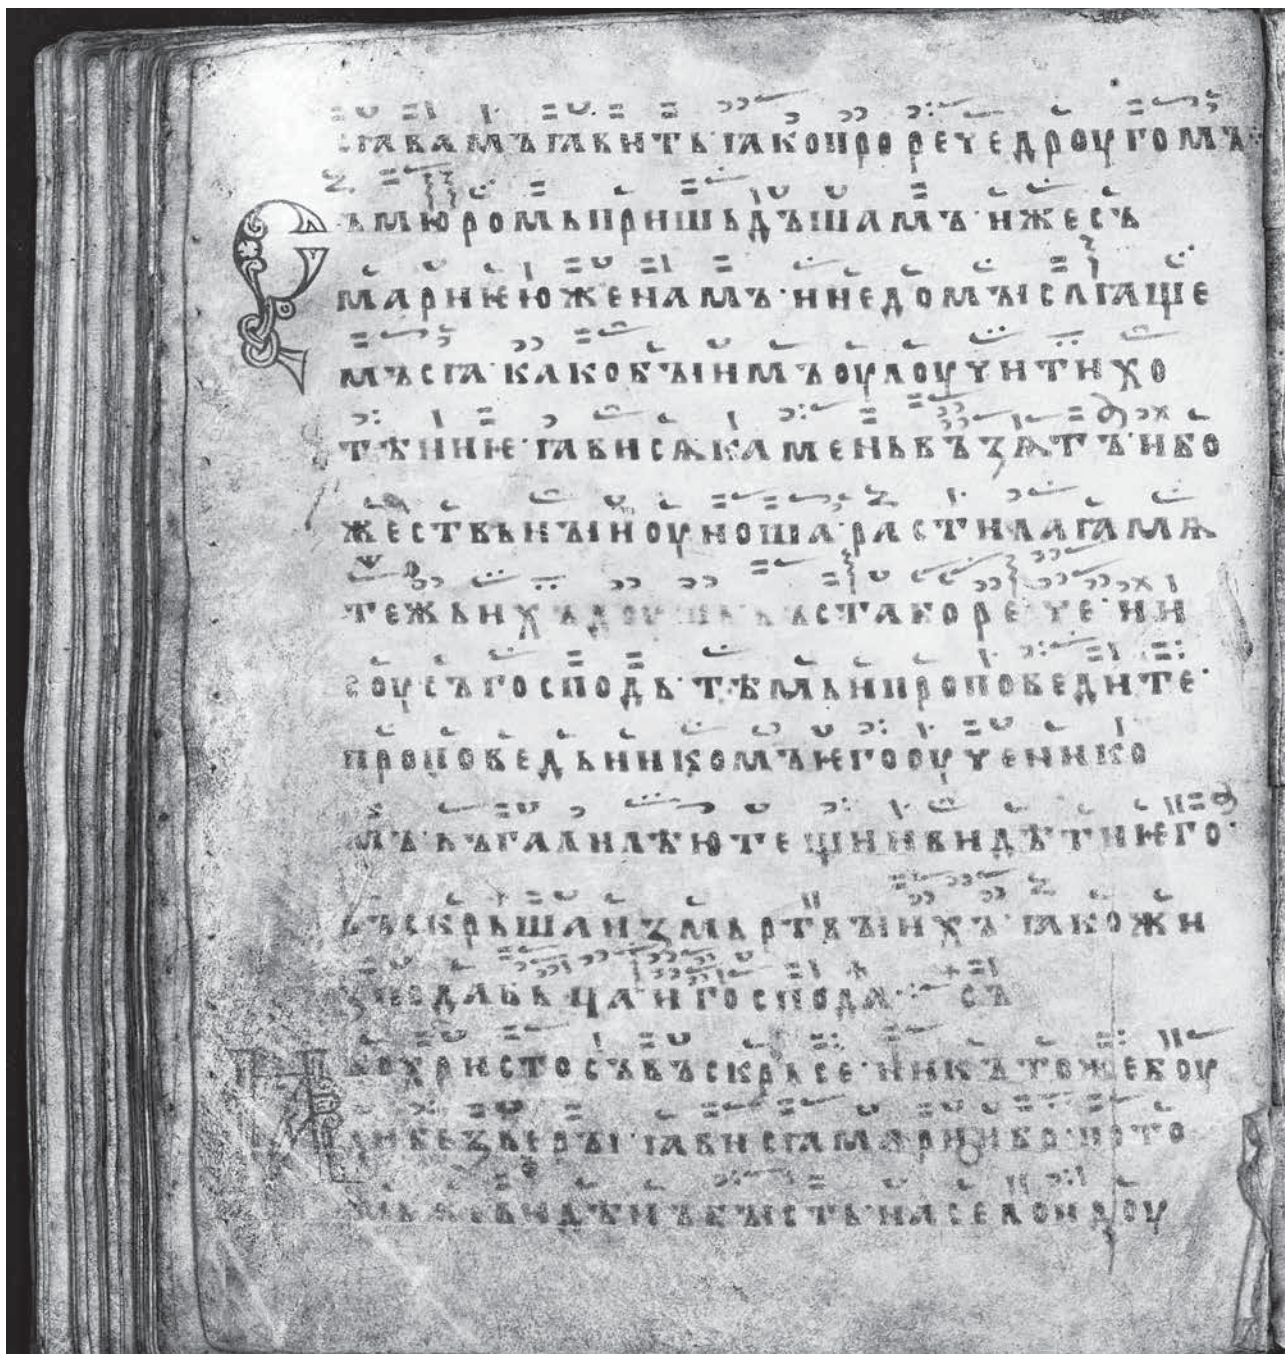 сꙗ вамъ ꙗвить ꙗко прорече дроугомъ
съ мюромь пришьдъшамъ иже съ
мариѥю женамъ · и недомыслꙗще
мъ сꙗ · како бы имъ оулоучити хо
тѣниѥ · ꙗви сѧ камень възѧтъ и бо
жествьныи оуноша · растилаꙗ мѧ
тежь ихъ въста бо рече · и и
соусъ господь · тѣмь и проповедите ·
проповедьникомъ ѥго оученико
мъ · въ галилѣю тещи и видѣти ѥго ·
въскрьша из мьртвыихъ · ꙗко жи
господа · съ
бо христосъ въскрьсе · никътоже боу
ди безверы ꙗви сꙗ марии бо пото
мь же видѣнъ бысть на село идоу